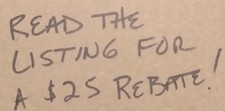 READ THE
LISTING FOR
A $25 REBATE!